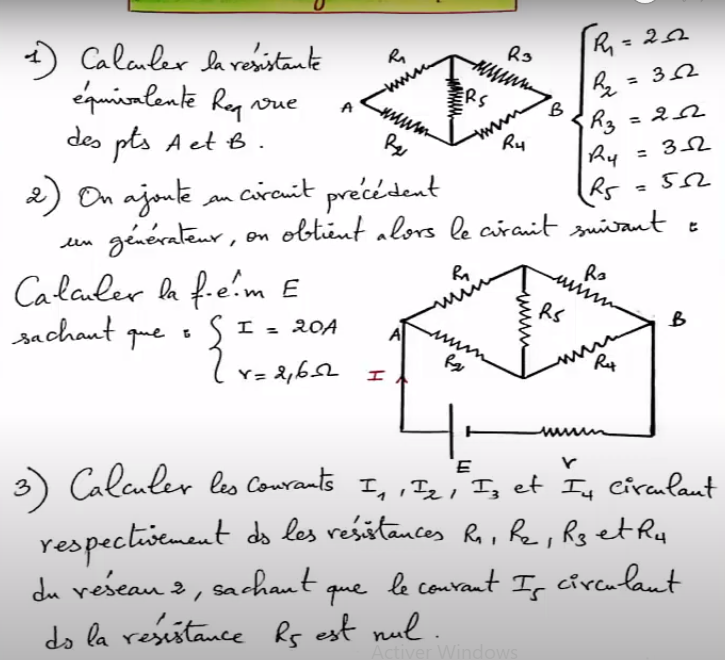 1) Calculer la résistante
équivalente Req vue
des pts A et B.
R1 R3
A R5 B
R2 R4
R1 = 2Ω
R2 = 3Ω
R3 = 2Ω
R4 = 3Ω
R5 = 5Ω
2) On ajoute au circuit précédent
un générateur, on obtient alors le circuit suivant :
Calculer la f.é.m E
sachant que : { I = 20A
r = 2,6Ω
R1 R3
A R5 B
R2 R4
I
E r
3) Calculer les courants I1, I2, I3 et I4 circulant
respectivement ds les résistances R1, R2, R3 et R4
du réseau 2, sachant que le courant I5 circulant
ds la résistance R5 est nul.
Activer Windows